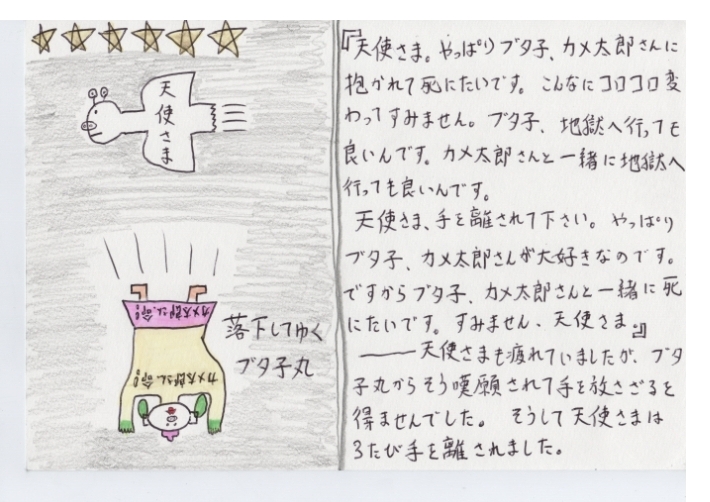 天使さま
カメ太郎さん命!
カメ太郎さん命!
落下してゆく
ブタ子丸
『天使さま。やっぱりブタ子、カメ太郎さんに
抱かれて死にたいです。こんなにコロコロ変
わってすみません。ブタ子、地獄へ行っても
良いんです。カメ太郎さんと一緒に地獄へ
行っても良いんです。
天使さま、手を離されて下さい。やっぱり
ブタ子、カメ太郎さんが大好きなのです。
ですからブタ子、カメ太郎さんと一緒に死
にたいです。すみません、天使さま。』
――天使さまも疲れていましたが、ブタ
子丸からそう嘆願されて手を放さざると
得ませんでした。そうして天使さまは
ろたび手を離されました。